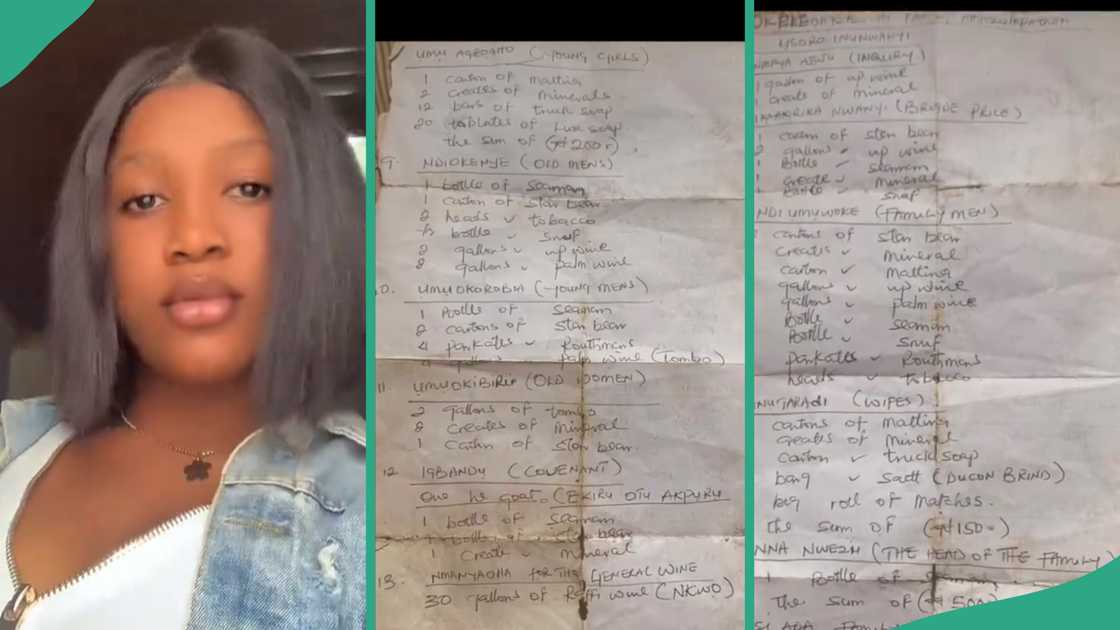 UMU AGBOGHO (YOUNG GIRLS)
1 carton of maltina
2 creates of minerals
12 bars of truck soap
20 tablates of Lux soap
the sum of (₦200=)
9. NDIOKENYE (OLD MENS)
1 bottle of seaman
1 carton of star bear
2 heads ✓ tobacco
bottle ✓ snuf
2 gallons ✓ up wine
8 gallons ✓ palm wine
UMUOKOROBIA (YOUNG MENS)
1 Bottle of seaman
2 cartons of star bear
4 parkates ✓ Routhmans
gallons ✓ palm wine (Tombo)
11. UMUOKIBIRIA (OLD WOMEN)
2 gallons of tombo
8 creates of mineral
1 carton of star bear.
12 IGBANDU (COVENANT)
One he goat. (EKIRU OTU AKPURU
1 bottle of seaman
bottle of star bear
1 create ✓ mineral
13. NMANYAOHA FOR THE GENERAL WINE
30 gallons of Raffi wine (NKWO)
USORO INUNWANYI
(INQUIRY)
1 gallon of up wine
1 create of mineral
NWANYI (BRIDE PRICE)
1 carton of star bear
2 gallons ✓ up wine
1 Bottle ✓ seaman
1 create ✓ mineral
Bottle ✓ snuf
NDI UMUNNE (FAMILY MEN)
cartons of star bear
creates ✓ mineral
carton ✓ maltina
gallons ✓ up wine
gallons ✓ palm wine
Bottle ✓ seaman
Bottle ✓ snuf
parkates ✓ Routhmans
heads ✓ tobacco
(WIPES)
cartons of maltina
creates of mineral
carton ✓ truck soap
bag ✓ (DUCON BRIND)
big roll of matches.
the sum of (₦150=)
NNA NWEZI (THE HEAD OF THE FAMILY)
1 Bottle of seaman
The sum of (₦500=)